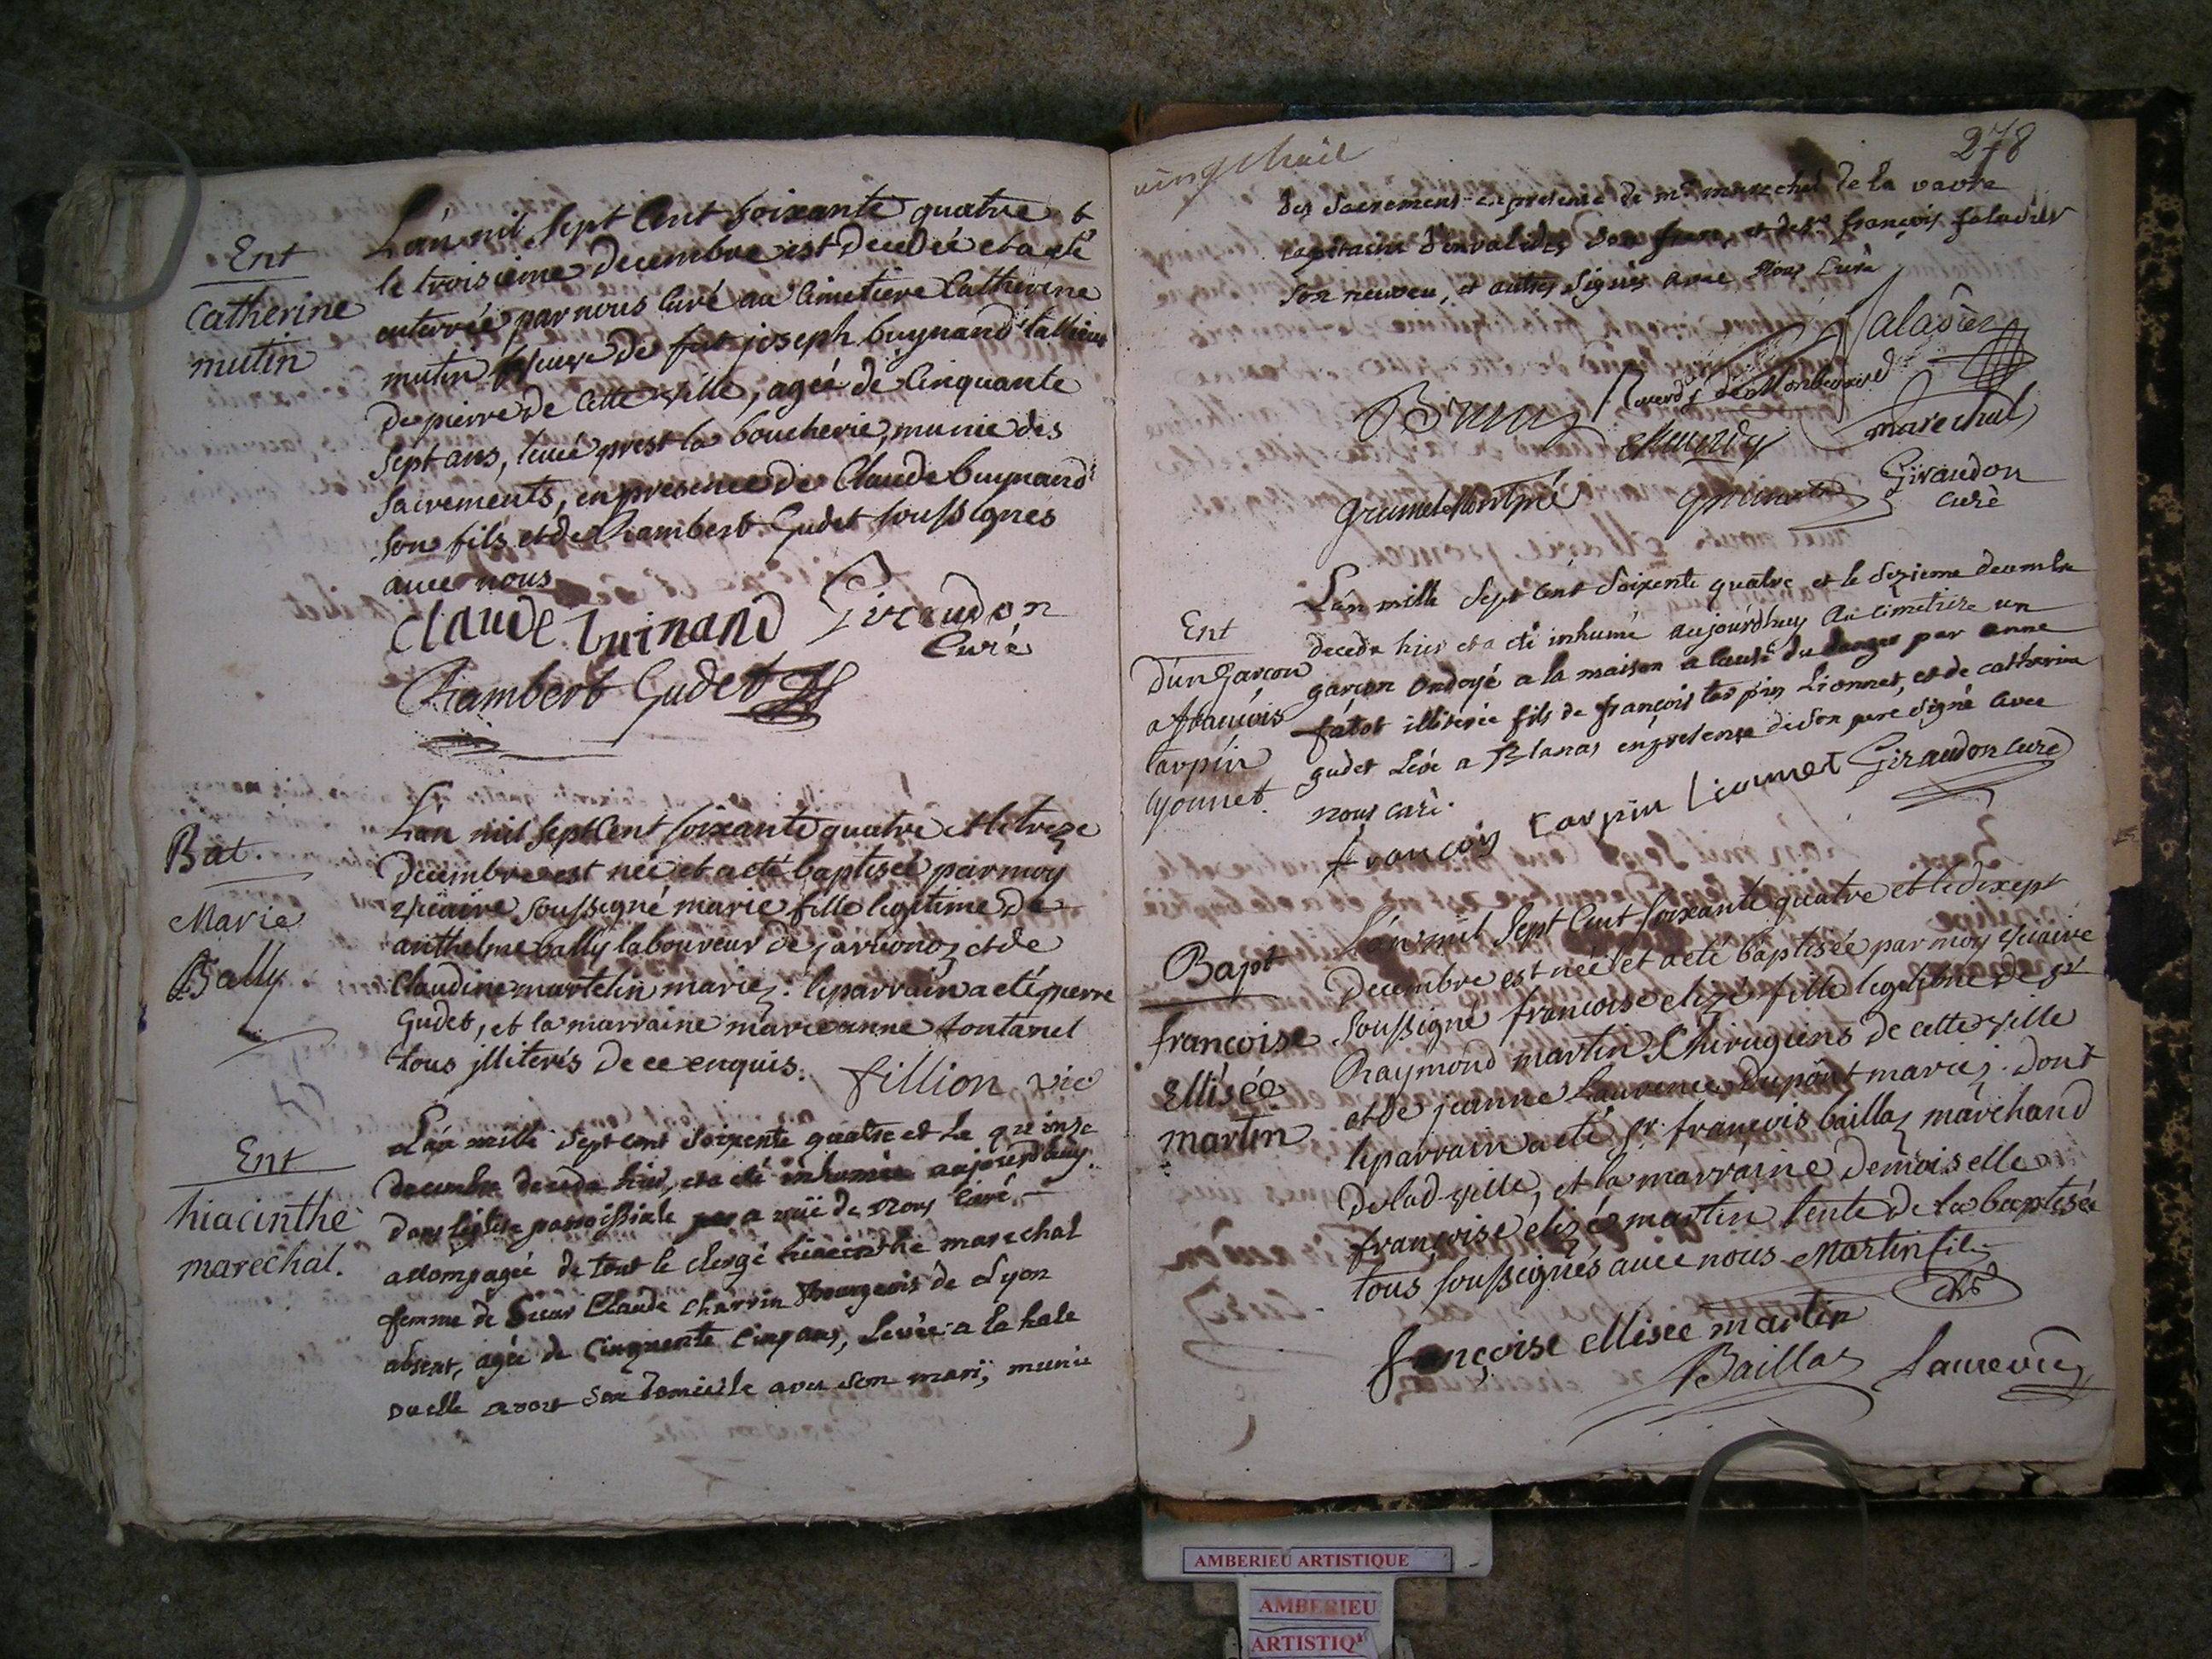 Ent
Catherine
mutin
L'an mil sept Cent soixante quatre &
le troisieme decembre est decedée et a eté
enterrée par nous Curé au Cimetiere Catherine
mutin veuve de feu joseph buynand tallieur
de pierre de Cette ville, agée de Cinquante
sept ans, levée prest la boucherie, munie des
sacrements, en presence de Claude buynand
son fils et de Chambert Gudet soussignes
avec nous
Claude buinand Giraudon
Curé
Chambert Gudet
Bat.
Marie
Bally
L'an mil sept Cent soixante quatre et le treze
decembre est née et a eté baptisée par moy
vicaire soussigné marie fille legitime de
anthelme bally laboureur de jarionoz et de
Claudine martelin mariez. le parrain a eté pierre
Gudet, et la marraine marie anne fontanel
tous jlliterés de ce enquis. fillion vic
Ent
hiacinthe
marechal.
L'an mille sept cent soixente quatre et le quinze
decembre deceda hier, et a eté inhumée aujourdhuy
dans l'eglise paroissiale par a nüe de Nous Curé
accompagée de tout le clergé hiacinthe marechal
femme de Sieur Claude Charrin Bourgeois de Lyon
absent, agée de Cinquente Cinq ans, Levée a la hale
ou elle avoit son domicile avec son mari, munie
vingt huit
278
des sacremens en presence de mr marechal de la vavre
capitaine d'invalides son frere, et de sr françois faladier
son neuveu, et autres signés avec Nous Curé
faladier
marechal
Grumet Montpié
Giraudon
Curé
Ent
d'un garcon
a francois
tarpin
lyonnet.
L'an mille sept cent soixente quatre et le sezieme decembre
deceda hier et a eté inhumé aujourdhuy au cimetiere un
garçon ondoyé a la maison a cause du danger par anne
fatot illiterée fils de françois tarpin Lionnet, et de catherine
gudet Levé a Blanas en presence de son pere signé avec
nous curé.
francois tarpin Lionnet Giraudon curé
Bapt
francoise
Ellisée
martin
L'an mil sept Cent soixante quatre et le dixsept
decembre est née et a eté baptisée par moy vicaire
soussigné francoise elizé fille legitime de sr
Raymond martin Chirugiens de cette ville
et de jeanne Laurence Dupont mariez. dont
le parrain a eté sr. francois baillaz marchand
de lad ville, et la marraine demoiselle
françoise élizé martin tente de la baptisée
tous soussignés avec nous Martin fils
françoise ellisee martin
Baillaz